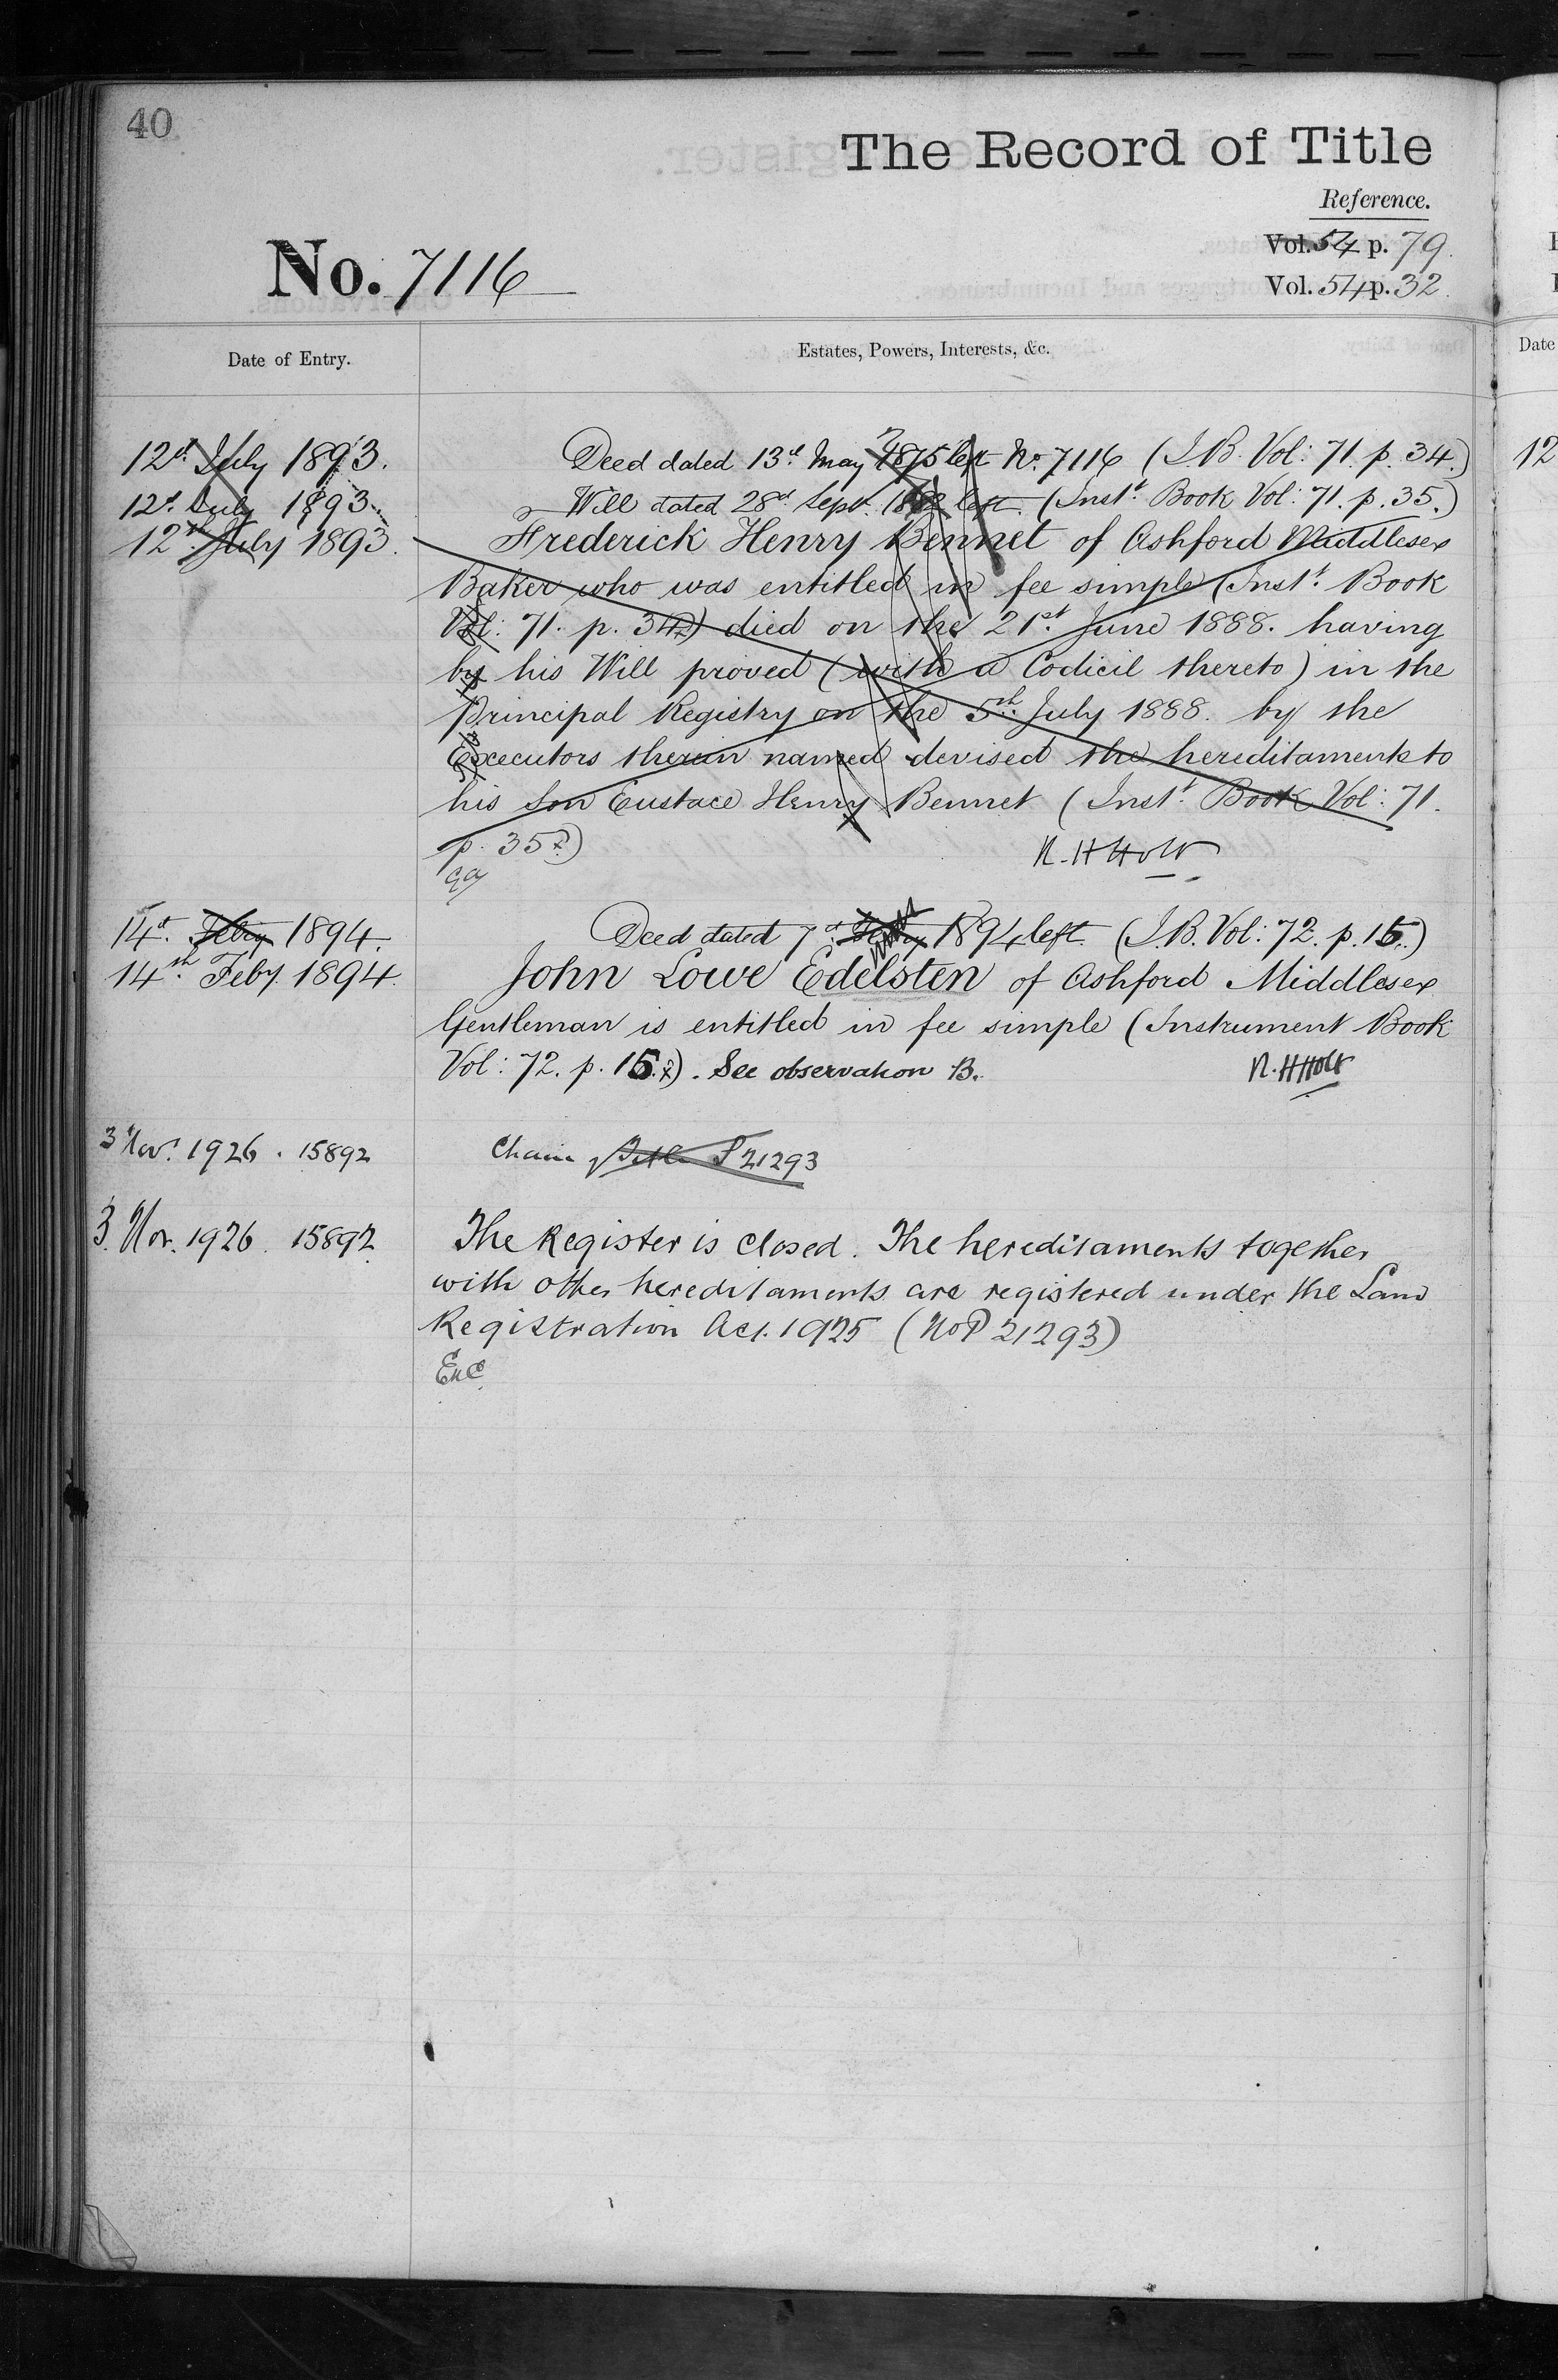 40
The Record of Title
Reference.
No. 7116
Vol. 54 p. 79.
Vol. 54 p. 32.
Date of Entry.
Estates, Powers, Interests, &c.
Date
12th July 1893. Deed dated 13th May 1875 left No. 7116 (I.B. Vol: 71. p. 34.)
12
12th July 1893. Will dated 28th Sept. left. (Inst. Book Vol: 71. p. 35.)
12th July 1893. Frederick Henry Bennet of Ashford Middlesex
Baker who was entitled in fee simple (Inst. Book
Vol: 71. p. 34) died on the 21st June 1888. having
by his Will proved (with a Codicil thereto) in the
Principal Registry on the 5th July 1888. by the
Executors therein named devised the hereditaments to
his Son Eustace Henry Bennet (Inst. Book Vol: 71.
p. 35) R. H Holt
14th Feby 1894. Deed dated 7th 1894 left. (I.B. Vol: 72. p. 15.)
14th Feby. 1894. John Lowe Edelsten of Ashford Middlesex
Gentleman is entitled in fee simple (Instrument Book
Vol: 72. p. 15.). See observation B. R. H Holt
3 Nov. 1926. 15892 Chain of Title P 21293
3. Nov. 1926. 15892 The Register is closed. The hereditaments together
with other hereditaments are registered under the Land
Registration Act. 1925 (No P 21293)